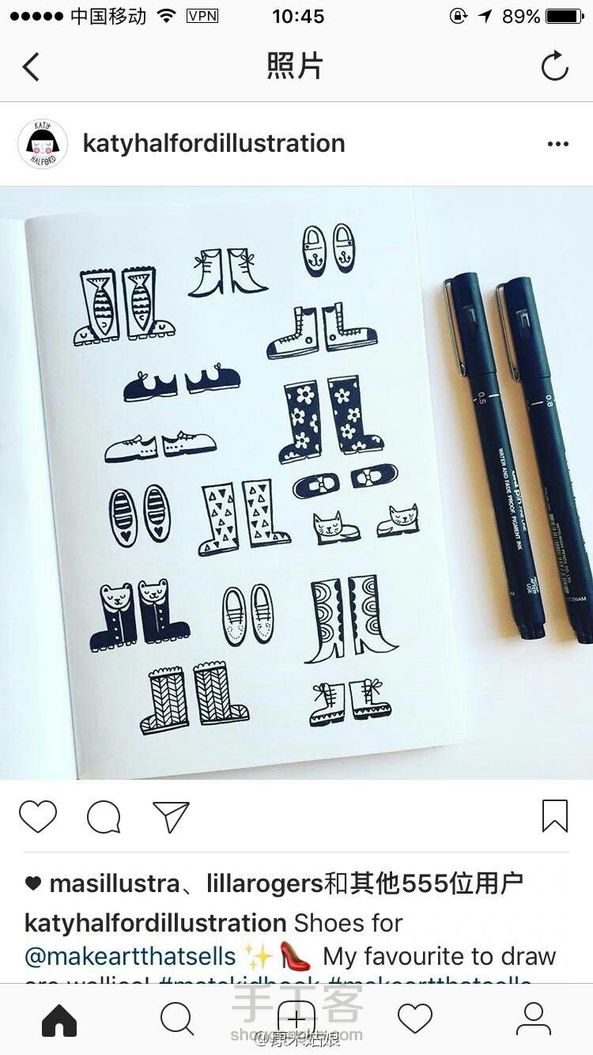 中国移动 VPN 10:45 89%
照片
KATY
HALFORD
katyhalfordillustration
0.5
0.8
WATER AND FADE PROOF, PIGMENT INK
masillustra、lillarogers和其他555位用户
katyhalfordillustration Shoes for
@makeartthatsells ✨👠 My favourite to draw
are wellies! #matskidbook #makeartthatsells
手工客
@康米姑娘